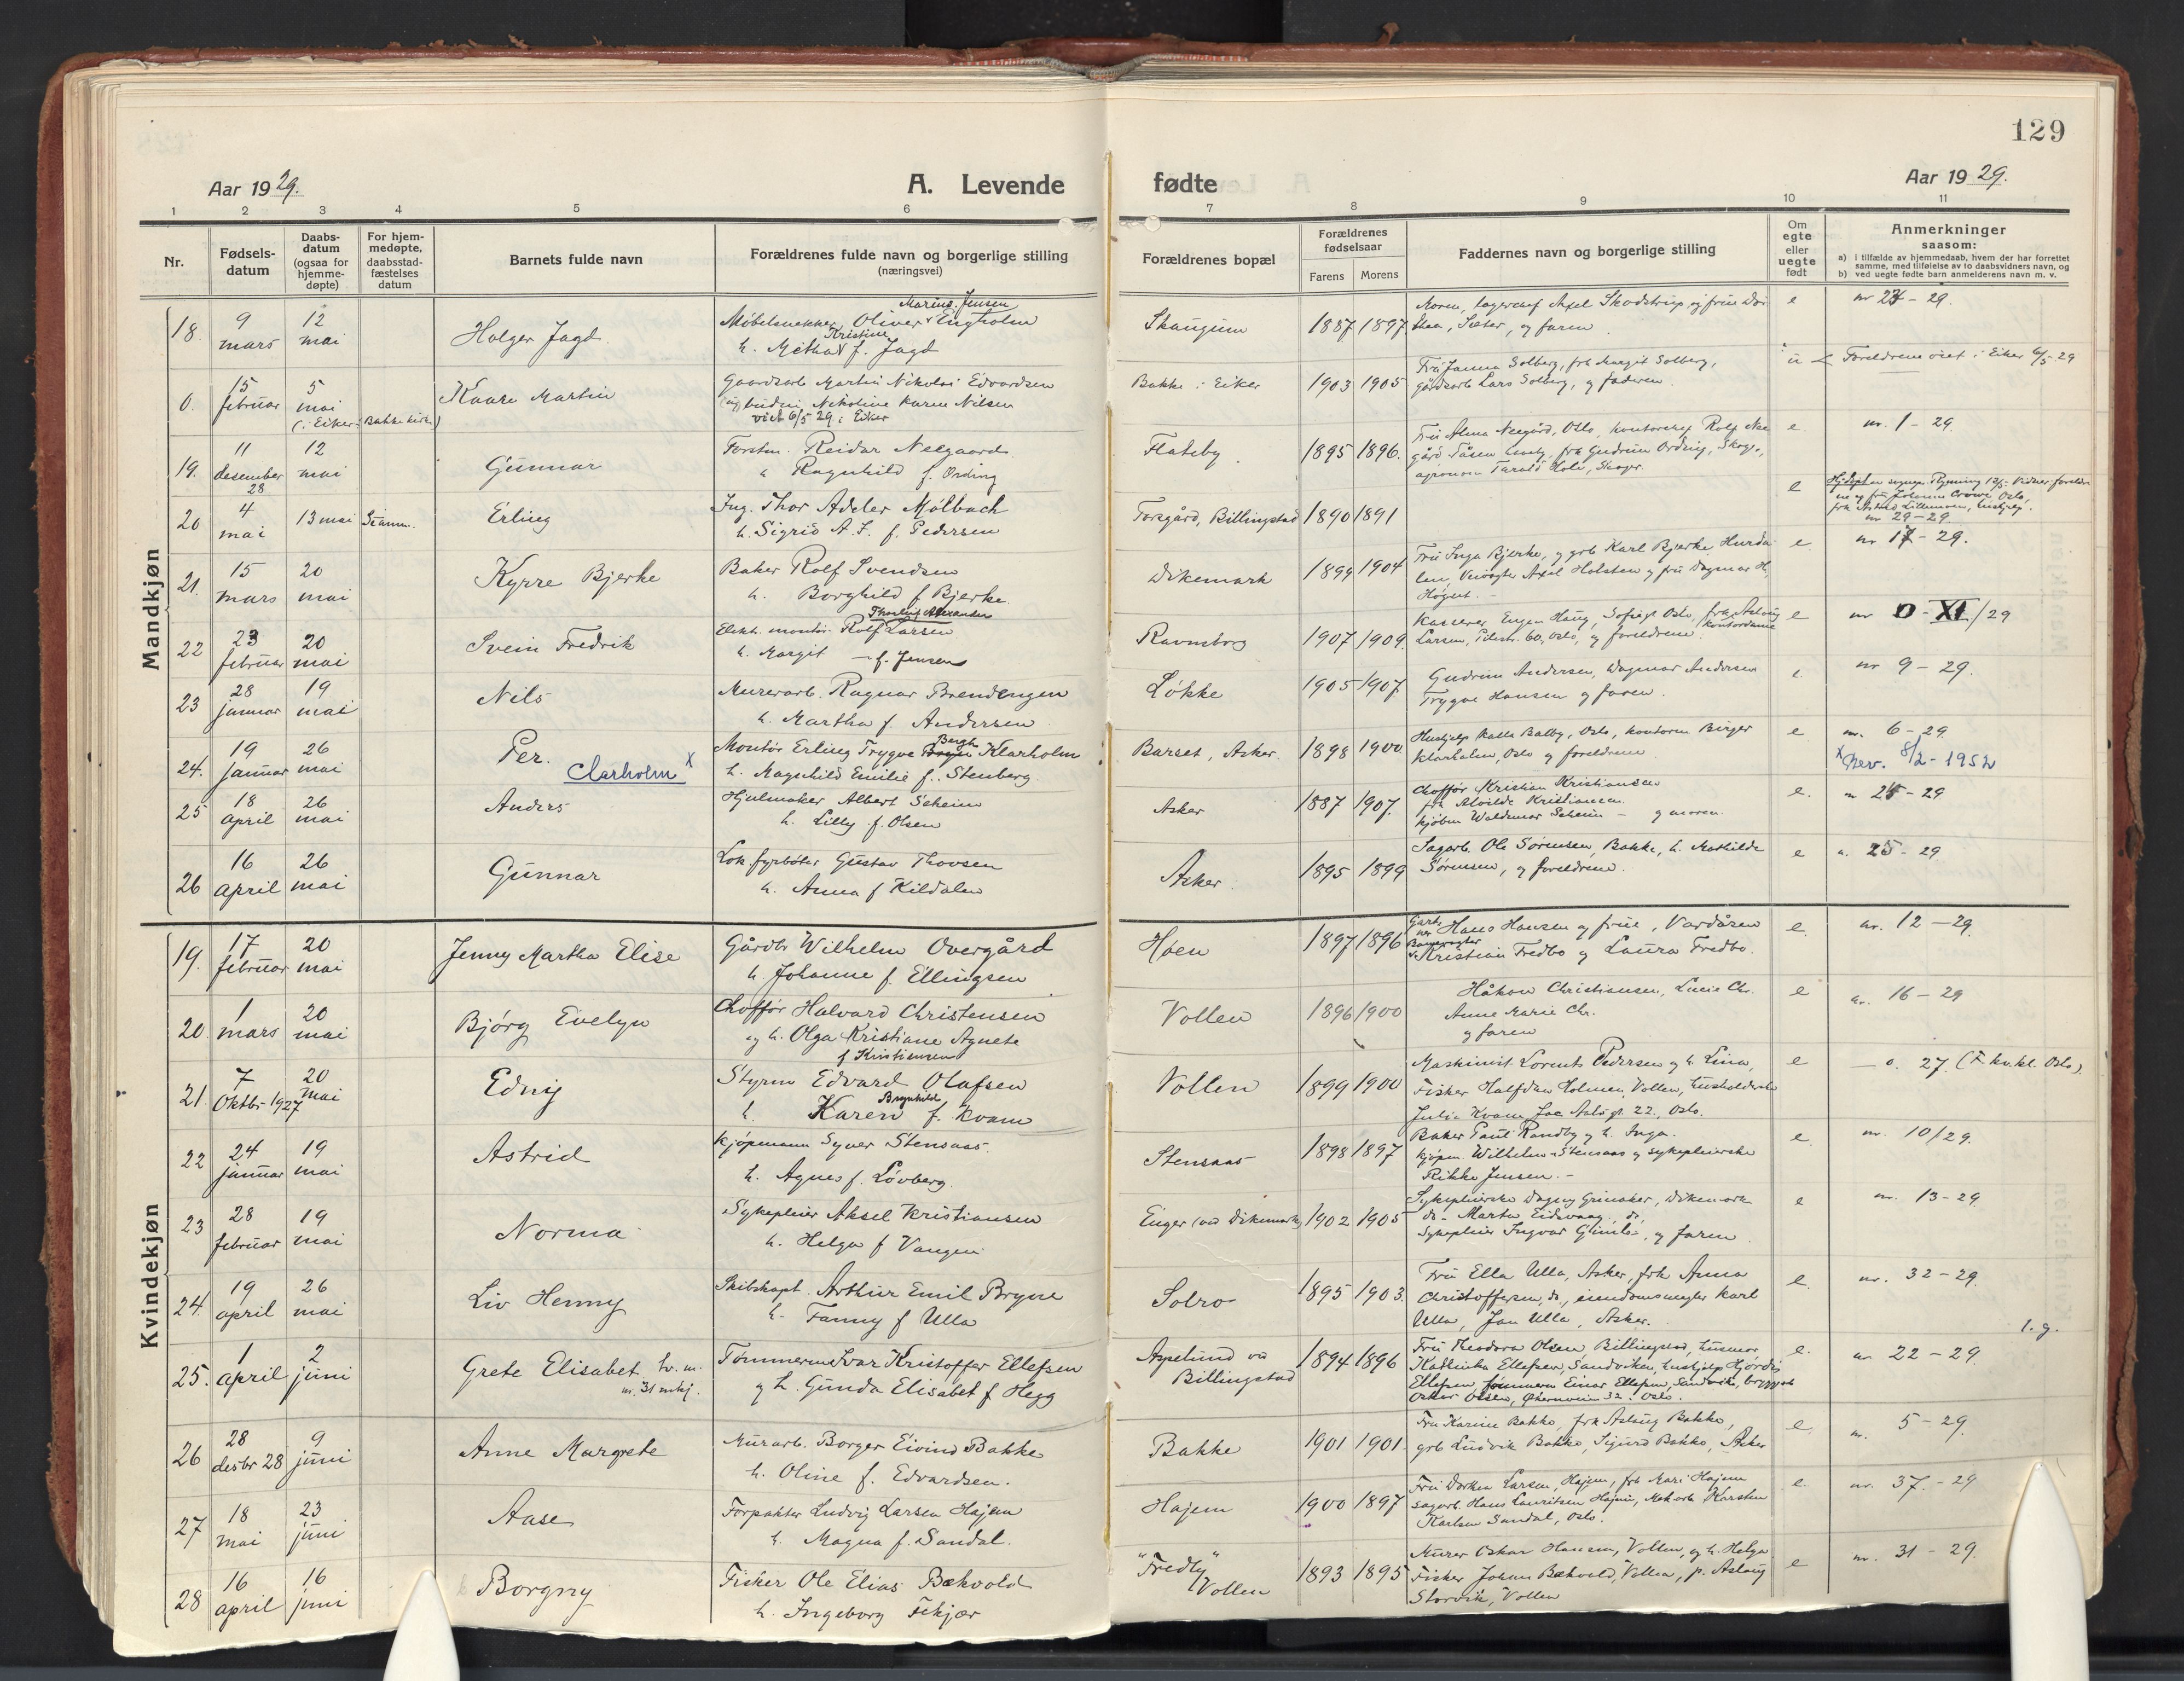 129
Aar 1929.
A. Levende fødte
Aar 1929.
1 2 3 4 5 6 7 8 9 10 11
Nr.
Fødsels-
datum
Daabs-
datum
(ogsaa for
hjemme-
døpte)
For hjem-
medøpte,
daabsstad-
fæstelses
datum
Barnets fulde navn
Forældrenes fulde navn og borgerlige stilling
(næringsvei)
Forældrenes bopæl
Forældrenes
fødselsaar
Farens Morens
Faddernes navn og borgerlige stilling
Om
egte
eller
uegte
født
Anmerkninger
saasom:
a) i tilfælde av hjemmedaab, hvem der har forrettet
samme, med tilføielse av to daabsvidners navn, og
b) ved uegte fødte barn anmelderens navn m. v.
Mandkjøn
18. 9 mars 12 mai Holger Jagd.
Marius Jensen
Møbelsnekker Oliver Engholm
Kristine
h. Metha f. Jagd
Skaugum 1887 1897
e nr 24 - 29.
0. 15 februar 5 mai (i Eiker: Bakke kirke) Kaare Martin
Gaardsarb Martin Nikolai Edvardsen
Nikoline Karen Nilsen
viet 6/5 29 i Eiker
Bakke i Eiker 1903 1905
Fru Janna Solberg, frk Margit Solberg,
gårdsarb Lars Solberg, og faderen.
u Foreldrene viet i Eiker 6/5-29
19. 11 desember 28 12 mai Gunnar
Forstm. Reidar Neegaard
" Ragnhild f. Ording
Flateby 1895 1896.
e nr. 1 - 29.
20 4 mai 13 mai Erling
Ing. Thor Adeler Mølbach
h. Sigrid A. F. f. Pedersen
Torsgård, Billingstad 1890 1891
e
nr 29-29
21. 15 mars 20 mai Kyrre Bjerke
Baker Rolf Svendsen
h. Borghild f Bjerke.
Dikemark 1899 1904
Fru Inga Bjerke, og grb Karl Bjerke Hurda
len,
e nr 17 - 29.
22 23 februar 20 mai Svein Fredrik
Elektr. montør Rolf Larsen
h. Margit - f. Jensen
Ravnsborg 1907 1909.
Kasserer Eugen Haug, Sofiesgt Oslo, frk Aslaug
Larsen, 60, Oslo, og foreldrene.
e nr 0 - XI/29
23 28 januar 19 mai Nils
Murerarb. Ragnar Brendengen
h. Martha f. Andersen
Løkke 1905 1907
Gudrun Andersen, Dagmar Andersen
Trygve Hansen og faren.
e. nr 9 - 29.
24. 19 januar 26 mai Per. Clarholm x
Bergh
Montør Erling Trygve Klarholm
h. Magnhild Emilie f. Stenberg.
Barset, Asker. 1898 1900
Klarholm, Oslo og foreldrene
e nr. 6 - 29
x Nev. 8/2 - 1952
25 18 april 26 mai Anders
Hjulmaker Albert Seheim
h. Lilly f. Olsen
Asker 1887 1907.
Chaffør Kristian Kristiansen
frk Alvilde Kristiansen.
kjøbm Waldemar Seheim - og moren.
e. 24 - 29
26 16 april 26 mai Gunnar
Lok. fyrbøter Gustav Thovsen
h. Anna f Kildalen
Asker. 1895 1899
Sagarb. Ole Sørensen, Bakke, h. Mathilde
Sørensen, og foreldrene.
e 25 - 29
Kvindekjøn
19. 17 februar 20 mai Jenny Martha Elise
Gårdbr Wilhelm Overgård
h. Johanne f. Ellingsen
Hoen 1897 1896
Hans Hansen og frue, Vardåsen
Kristian Fredbo og Laura Fredbo.
e. nr. 12 - 29.
20. 1 mars 20 mai Bjørg Evelyn
Chaffør Halvard Christensen
og h. Olga Kristiane Agnete
f Kristiansen
Vollen 1896 1900
Håkon Christiansen, Lucie Chr.
Anne Marie Chr.
og faren
e nr. 16 - 29
21. 7 Oktbr-1927 20 mai Edny
Styrm Edvard Olafsen
Brynhilde
h. Karen f. Kvam
Vollen 1899 1900
Maskinist Lorents Pedersen og h. Lina,
Fisker Halfdan Holmen, Vollen,
Julie Kvam, Jac Aalls gt. 22, Oslo.
e 27. (F. kv.kl. Oslo).
22 24 januar 19 mai Astrid
Kjøpmann Syver Stensaas.
h. Agnes f. Løvberg.
Stensaas 1898 1897
Baker Paul Randby og h. Inga.
kjøpm. Wilhelm Stensaas og sykepleierske
Rikke Jensen. -
e. nr. 10/29.
23 28 februar 19 mai Norma
Sykepleier Aksel Kristiansen
h. Helga f Vangen
Enger (ved Dikemark) 1902 1905
Sykepleierske Dagny Grinaker, Dikemark
do - Martha Eidsvaag, do,
Sykepleier Ingvar Gimle, og faren.
e nr. 13 - 29
24. 19 april 26 mai Liv Henny
Skibskapt. Arthur Emil Bryne
h. Fanny f Ulla
Solro 1895 1903.
Fru Ella Ulla, Asker, frk Anna
Christoffersen, do, eiendomsmegler Karl
Ulla, Jan Ulla, Asker.
e. nr. 32 - 29.
1. g.
25. 1 april 2 juni Grete Elisabet
nr. 31 mkj.
Tømmerm Ivar Kristoffer Ellefsen
og h. Gunda Elisabet f Hegg
Aspelund ved
Billingstad
1894 1896
Fru Theodora Olsen Billingstad, husmor
Kathinka Ellefsen, Sandviken, hushjelp Hjørdis
Ellefsen tømmerm Einar Ellefsen, Sandvika,
Oskar Olsen, Økernveien 32. Oslo.
e. nr 22 - 29.
26 28 desbr 28 9 juni Anne Margrete
Murarb. Borger Eivind Bakke
h. Oline f. Edvardsen.
Bakke 1901 1901.
Fru Karine Bakke, frk Aslaug Bakke,
grb Ludvik Bakke, Sigurd Bakke, Asker
e. nr. 5 - 29.
27 18 mai 23 juni Aase
Forpakter Ludvig Larsen Hajem
h. Magna f. Sandal.
Hajem 1900 1897
Fru Dorthea Larsen, Hajem, frk Mari Hajem
sagarb. Hans Lauritsen Hajem, Karsten
Karlsen Sandal, Oslo.
e. nr. 37. - 29
28 16 april 16 juni Borgny
Fisker Ole Elias Bækvold
h. Ingeborg Fekjær
"Fredly"
Vollen
1893 1895
Murer Oskar Hansen, Vollen, og h. Helga
Fisker Johan Bækvold, Vollen, p. Aslaug
Storvik, Vollen
e nr. 31 - 29.